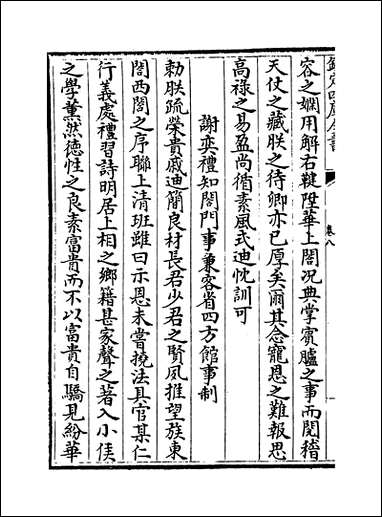 欽定四庫全書
卷八
容之嫺用解右鞬陞華上閤况典掌賓臚之事而閱稽
天仗之藏朕之待卿亦已厚矣爾其念寵恩之難報思
高祿之易盈尚循素風式迪忱訓可
謝奕禮知閤門事兼客省四方館事制
勑朕疏榮貴戚迪簡良材長君少君之賢夙推望族東
閤西閤之序聯上清班雖曰示恩未嘗撓法具官某仁
行義處禮習詩明居上相之鄉籍甚家聲之著入小侯
之學薫然德性之良素富貴而不以富貴自驕見紛華